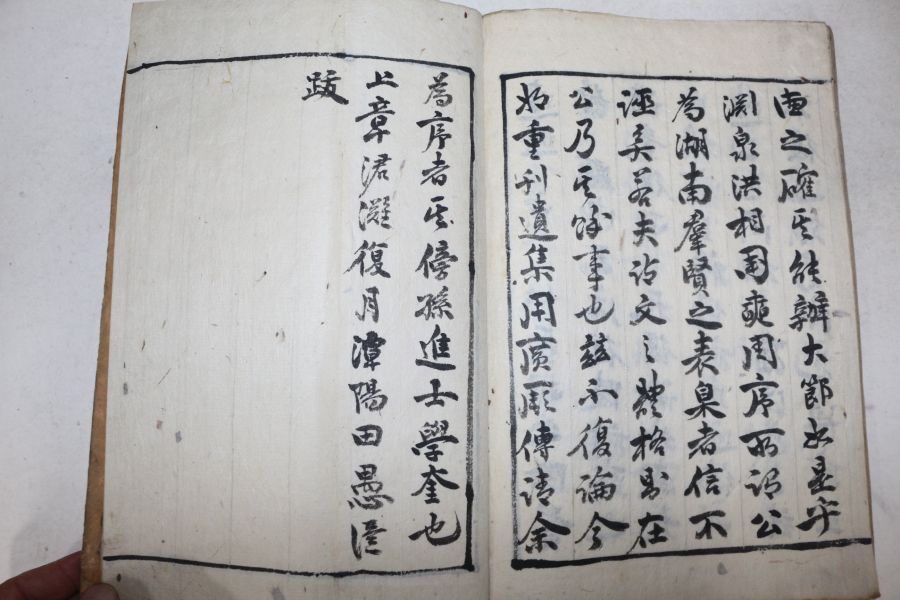 直之確其能辦大節如是乎
淵泉洪相國奭周序所謂公
為湖南羣賢之表臬者信不
誣矣若夫詩文之體格則在
公乃其餘事也玆不復論今
如重刊遺集用廣厥傳請余
為序者其傍孫進士學奎也
上章涒灘復月潭陽田愚謹
跋